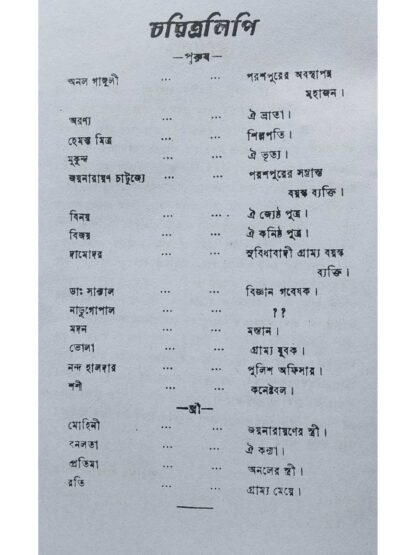 চরিত্রলিপি
—পুরুষ—
অনল গাঙ্গুলী ... ... পরশপুরের অবস্থাপন্ন
মহাজন।
অরণ্য ... ... ঐ ভ্রাতা।
হেমন্ত মিত্র ... ... শিল্পপতি।
মুকুন্দ ... ... ঐ ভৃত্য।
জয়নারায়ণ চাটুজ্যে ... ... পরশপুরের সম্ভ্রান্ত
বয়স্ক ব্যক্তি।
বিনয় ... ... ঐ জ্যেষ্ঠ পুত্র।
বিজয় ... ... ঐ কনিষ্ঠ পুত্র।
দামোদর ... ... সুবিধাবাদী গ্রাম্য বয়স্ক
ব্যক্তি।
ডাঃ সান্যাল ... ... বিজ্ঞান গবেষক।
নাড়ুগোপাল ... ... ??
মদন ... ... মস্তান।
ভোলা ... ... গ্রাম্য যুবক।
নন্দ হালদার ... ... পুলিশ অফিসার।
শশী ... ... কনেষ্টবল।
—স্ত্রী—
মোহিনী ... ... জয়নারায়ণের স্ত্রী।
বনলতা ... ... ঐ কন্যা।
প্রতিমা ... ... অনলের স্ত্রী।
রতি ... ... গ্রাম্য মেয়ে।